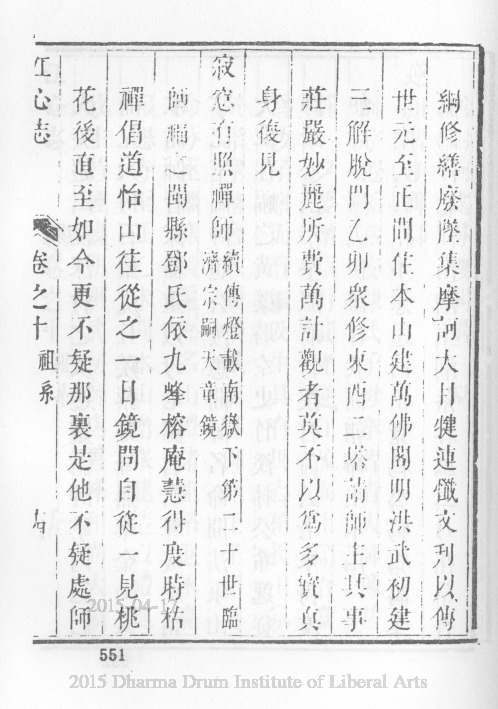 綱修繕廢墜集摩訶大目犍連懺文刊以傳
世元至正間住本山建萬佛閣明洪武初建
三解脫門乙卯眾修東西二塔請師主其事
莊嚴妙麗所費萬計觀者莫不以為多寶真
身復見
寂窓有照禪師續傳燈載南嶽下第二十世臨
濟宗嗣天童鏡
師福之閩縣鄧氏依九峰榕庵慧得度時枯
禪倡道怡山往從之一日鏡問自從一見桃
花後直至如今更不疑那裏是他不疑處師
心志 卷之十 祖系
551
2015-04-1
2015 Dharma Drum Institute of Liberal Arts